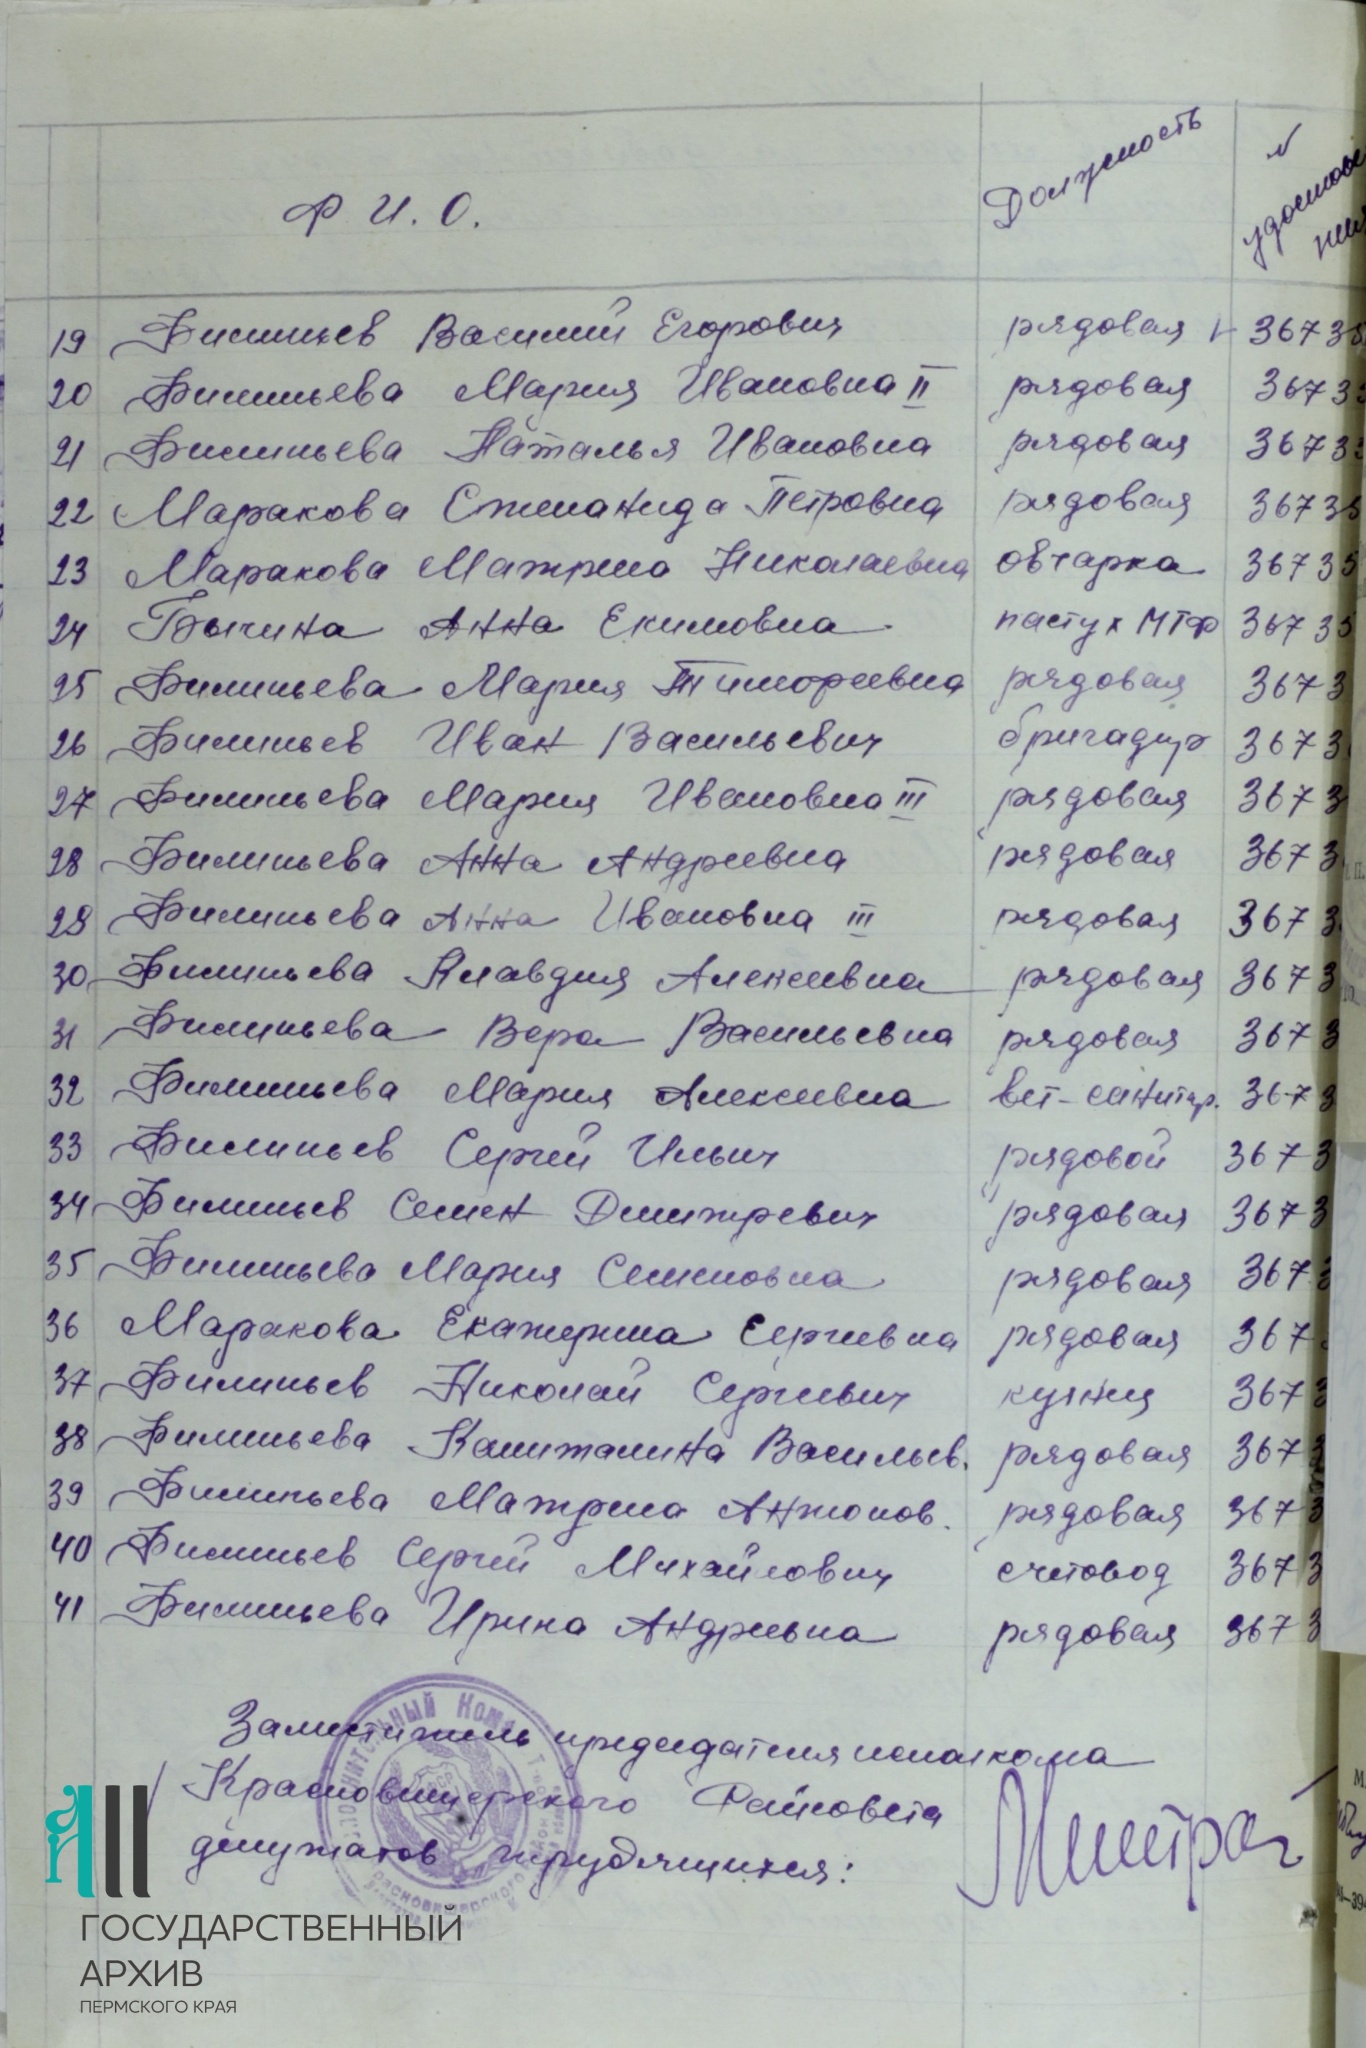 Ф. И. О. Должность N удостове
ния
19 Филипьев Василий Егорович рядовая 3673
20 Филипьева Мария Ивановна II рядовая 3673
21 Филипьева Наталья Ивановна рядовая 3673
22 Маракова Степанида Петровна рядовая 3673
23 Маракова Матрена Николаевна овчарка 36735
24 Бычина Анна Екимовна пастух МТФ 36735
25 Филипьева Мария Тимофеевна рядовая 3673
26 Филипьев Иван Васильевич бригадир 3673
27 Филипьева Мария Ивановна III рядовая 3673
28 Филипьева Анна Андреевна рядовая 3673
29 Филипьева Анна Ивановна III рядовая 3673
30 Филипьева Клавдия Алексеевна рядовая 3673
31 Филипьева Вера Васильевна рядовая 3673
32 Филипьева Мария Алексеевна вет-санитар. 3673
33 Филипьев Сергей Ильич рядовой 3673
34 Филипьев Семен Дмитревич рядовая 3673
35 Филипьева Мария Семеновна рядовая 3673
36 Маракова Екатерина Сергеевна рядовая 367
37 Филипьев Николай Сергеевич кузнец 3673
38 Филипьева Капиталина Васильев. рядовая 3673
39 Филипьева Матрена Антонов. рядовая 3673
40 Филипьев Сергей Михайлович счетовод 3673
41 Филипьева Ирина Андреевна рядовая 3673
Заместитель председателя исполкома
Красновишерского Райсовета
депутатов трудящихся:
ГОСУДАРСТВЕННЫЙ
АРХИВ
ПЕРМСКОГО КРАЯ